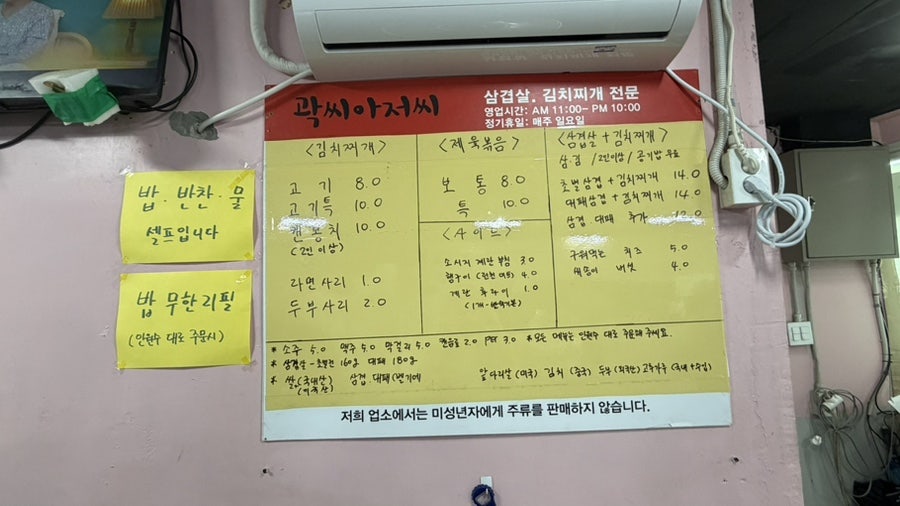 곽씨아저씨
삼겹살. 김치찌개 전문
영업시간: AM 11:00~ PM 10:00
정기휴일: 매주 일요일
<김치찌개>
고기 8.0
고기특 10.0
꽁치 10.0
(2인 이상)
라면사리 1.0
두부사리 2.0
<제육볶음>
보통 8.0
특 10.0
<사이드>
소시지 계란 부침 3.0
4.0
계란 후라이 1.0
<삼겹살 + 김치찌개>
삼겹 /2인이상/ 공기밥 무료
초벌삼겹 + 김치찌개 14.0
대패삼겹 + 김치찌개 14.0
삼겹 대패 추가
구워먹는 치즈 5.0
새송이 버섯 4.0
* 소주 5.0 맥주 5.0 막걸리 5.0 캔음료 2.0 PET 3.0 * 모든 메뉴는 인원수 대로 주문해 주세요.
* 삼겹살 - 초벌전 160g 대패 180g
* 쌀 (국내산) 삼겹 대패 (벨기에 앞다리살 (미국) 김치 (중국) 두부 (외국산) 고추가루 (국내+수입)
(미국산)
저희 업소에서는 미성년자에게 주류를 판매하지 않습니다.
밥·반찬·물
셀프입니다
밥 무한리필
(인원수 대로 주문시)